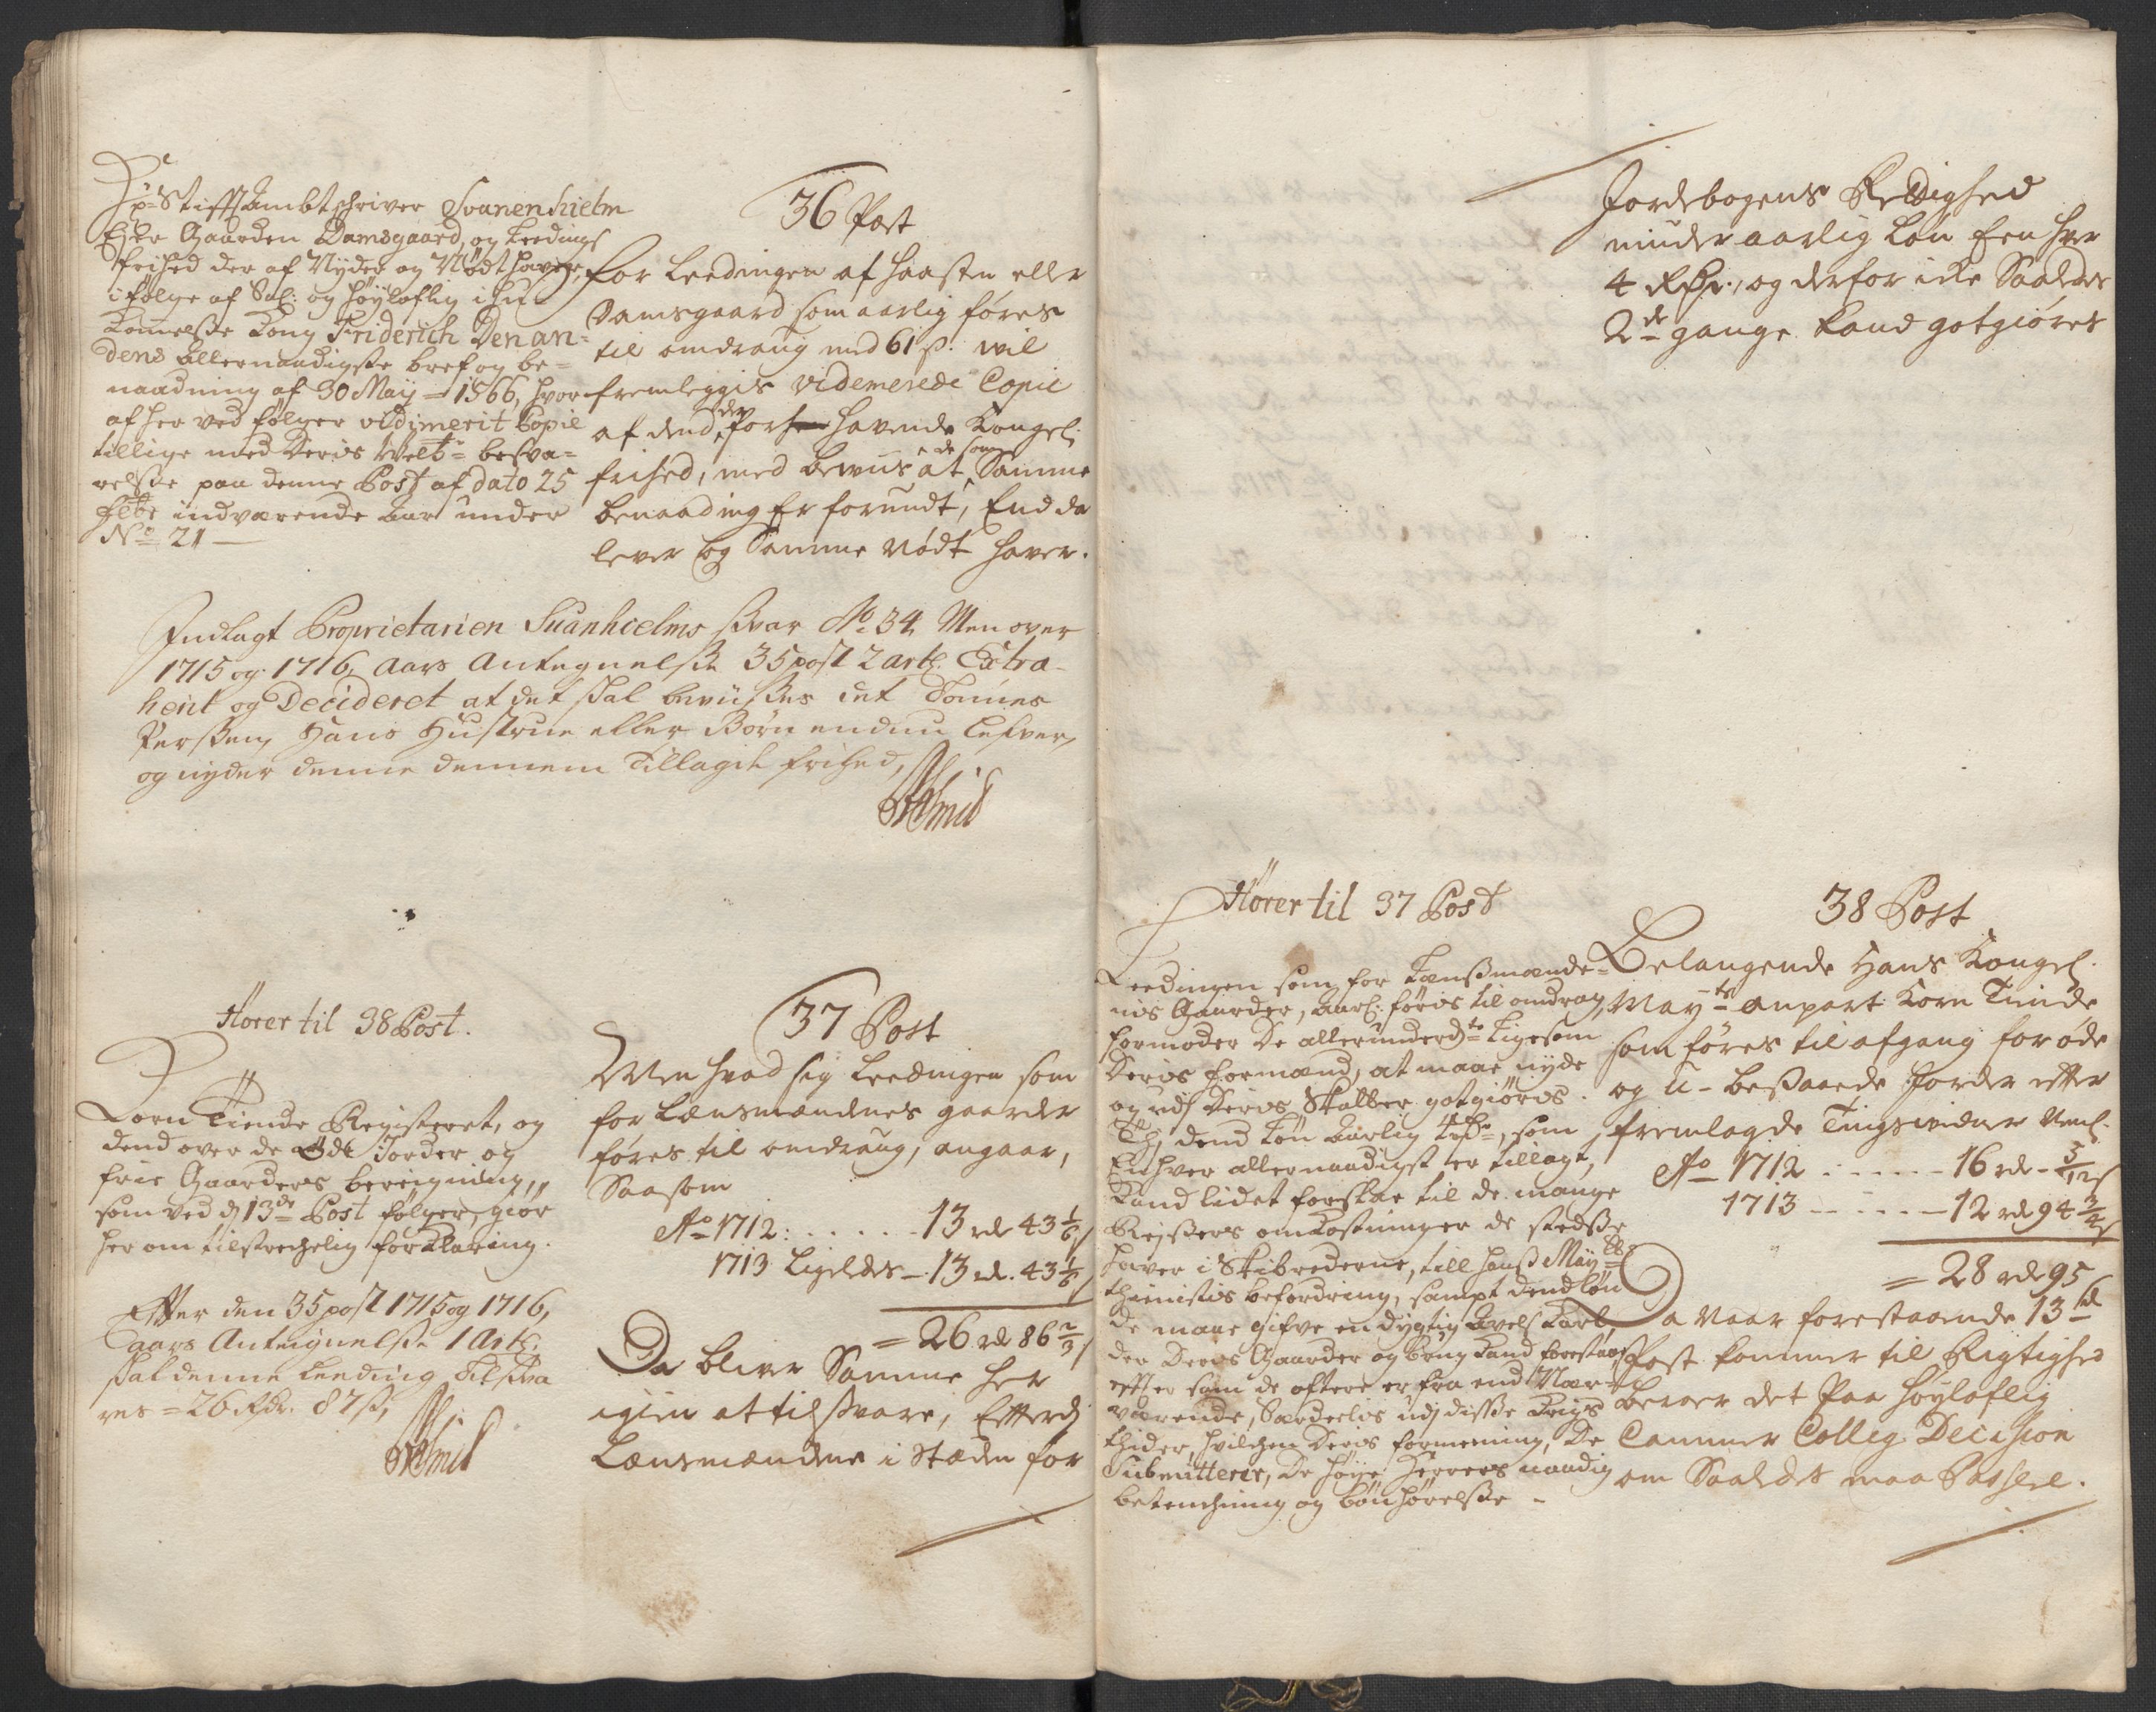 Hr Stiffts Ambtschriver Svanenhielm
Ejer Gaarden Damsgaard, og Leedings
frihed der af Nyder og Nødt haver
i følge af Sal: og høyloflig ihu-
kommelsse Kong Friderich Den an-
dens allernaadigste bref og be-
naadning af 30 Maij 1566, hvor
af her ved følger vidimerit Copie
tillige med Deris Velb. besva-
relsse paa denne Post af dato 25
Febr indværende aar under
No 21
36 Post
For Leedingen af haasten eller
Damsgaard som aarlig føres
til omdraug med 61 s. vil
fremleggis videmerede Copie
af dend der for havende Kongel:
frihed, med beviis at de som Samme
benaading Er forundt, End da
lever og Samme Nødt haver.
Indlagt Proprietarien Suanhielms svar No 34 Men over
1715 og 1716 Aars Antegnelsse 35 post 2 art: Extra-
herit og Decideret at det skal beviisses det Tønnes
Perssen, Hans Hustrue eller Børn endnu lefver,
og nyder denne dennem tillagde frihed,
Smid
Hører til 38 Post.
Korn Tiende Registeret, og
dend over de Øde Jorder og
frie Gaarders beregning,
som ved d. 13de Post følger, giør
her om tilstrechelig forklaring.
Effter den 35 post 1715 og 1716
Aars Antegnelsse 1 Art:
skal denne Leeding Tilsva
res = 26 Rdr. 87 s,
Smid
37 Post
Men hvad sig Leedingen som
for Lænsmændenes gaarder
føres til omdraug, angaar,
Saasom
Ao 1712: . . . . . 13 rd 43 1/6 s
1713 Ligeledes - 13 rd. 43 1/6 s
= 26 rd 86 2/3 s
Da bliver Samme her
igien at tilsvare, Efterdj
Lænsmændene i Stæden for
Jordebogens Rettighed
niuder aarlig Løn Een hver
4 Rdr., og derfor icke Saaledes
2de gange kand gotgiøres
Hører til 37 Post
Leedingen som for Lænssmænde-
nis Gaarder, aarl: føris til omdrag,
formoder De allerunderdte Ligesom
Deris formænd, at maae nyde
og udj Deris Skatter gotgiøris.
Thj dend Løn aarlig 4 rdr, som
Enhver allernaadigst er tillagt,
kand lidet forslae til de mange
Reysers omkostninger de stedsse
haver i Skibrederne, till hans Mayts
thienistis befordring, sampt dend løn
de maae gifve en dygtig Avels Karl,
der Deris Gaarder og brug kand forestaae
efter som de oftere er fra end Nær-
værende, Særdeelis udj disse Krigs
thider, hvilchen Deris formening, De
Submitterer, De høye Herrers naadig
betenchning og bønhørelsse -
38 Post
Belangende Hans Kongel.
Mayts anpart Korn Tiinde
som føres til afgang for øde
og u-besaaede Jorder efter
fremlagde Tingsvidner Neml.
Ao 1712 . . . . . 16 rd - 5/12 s
1713 . . . . . 12 rd 94 3/4 s
= 28 rd 95 s
Da Naar forestaaende 13de
Post kommer til Rigtighed
beroer det Paa høyloflig
Cammer Collegij Decision
om Saaledes maa Passere.